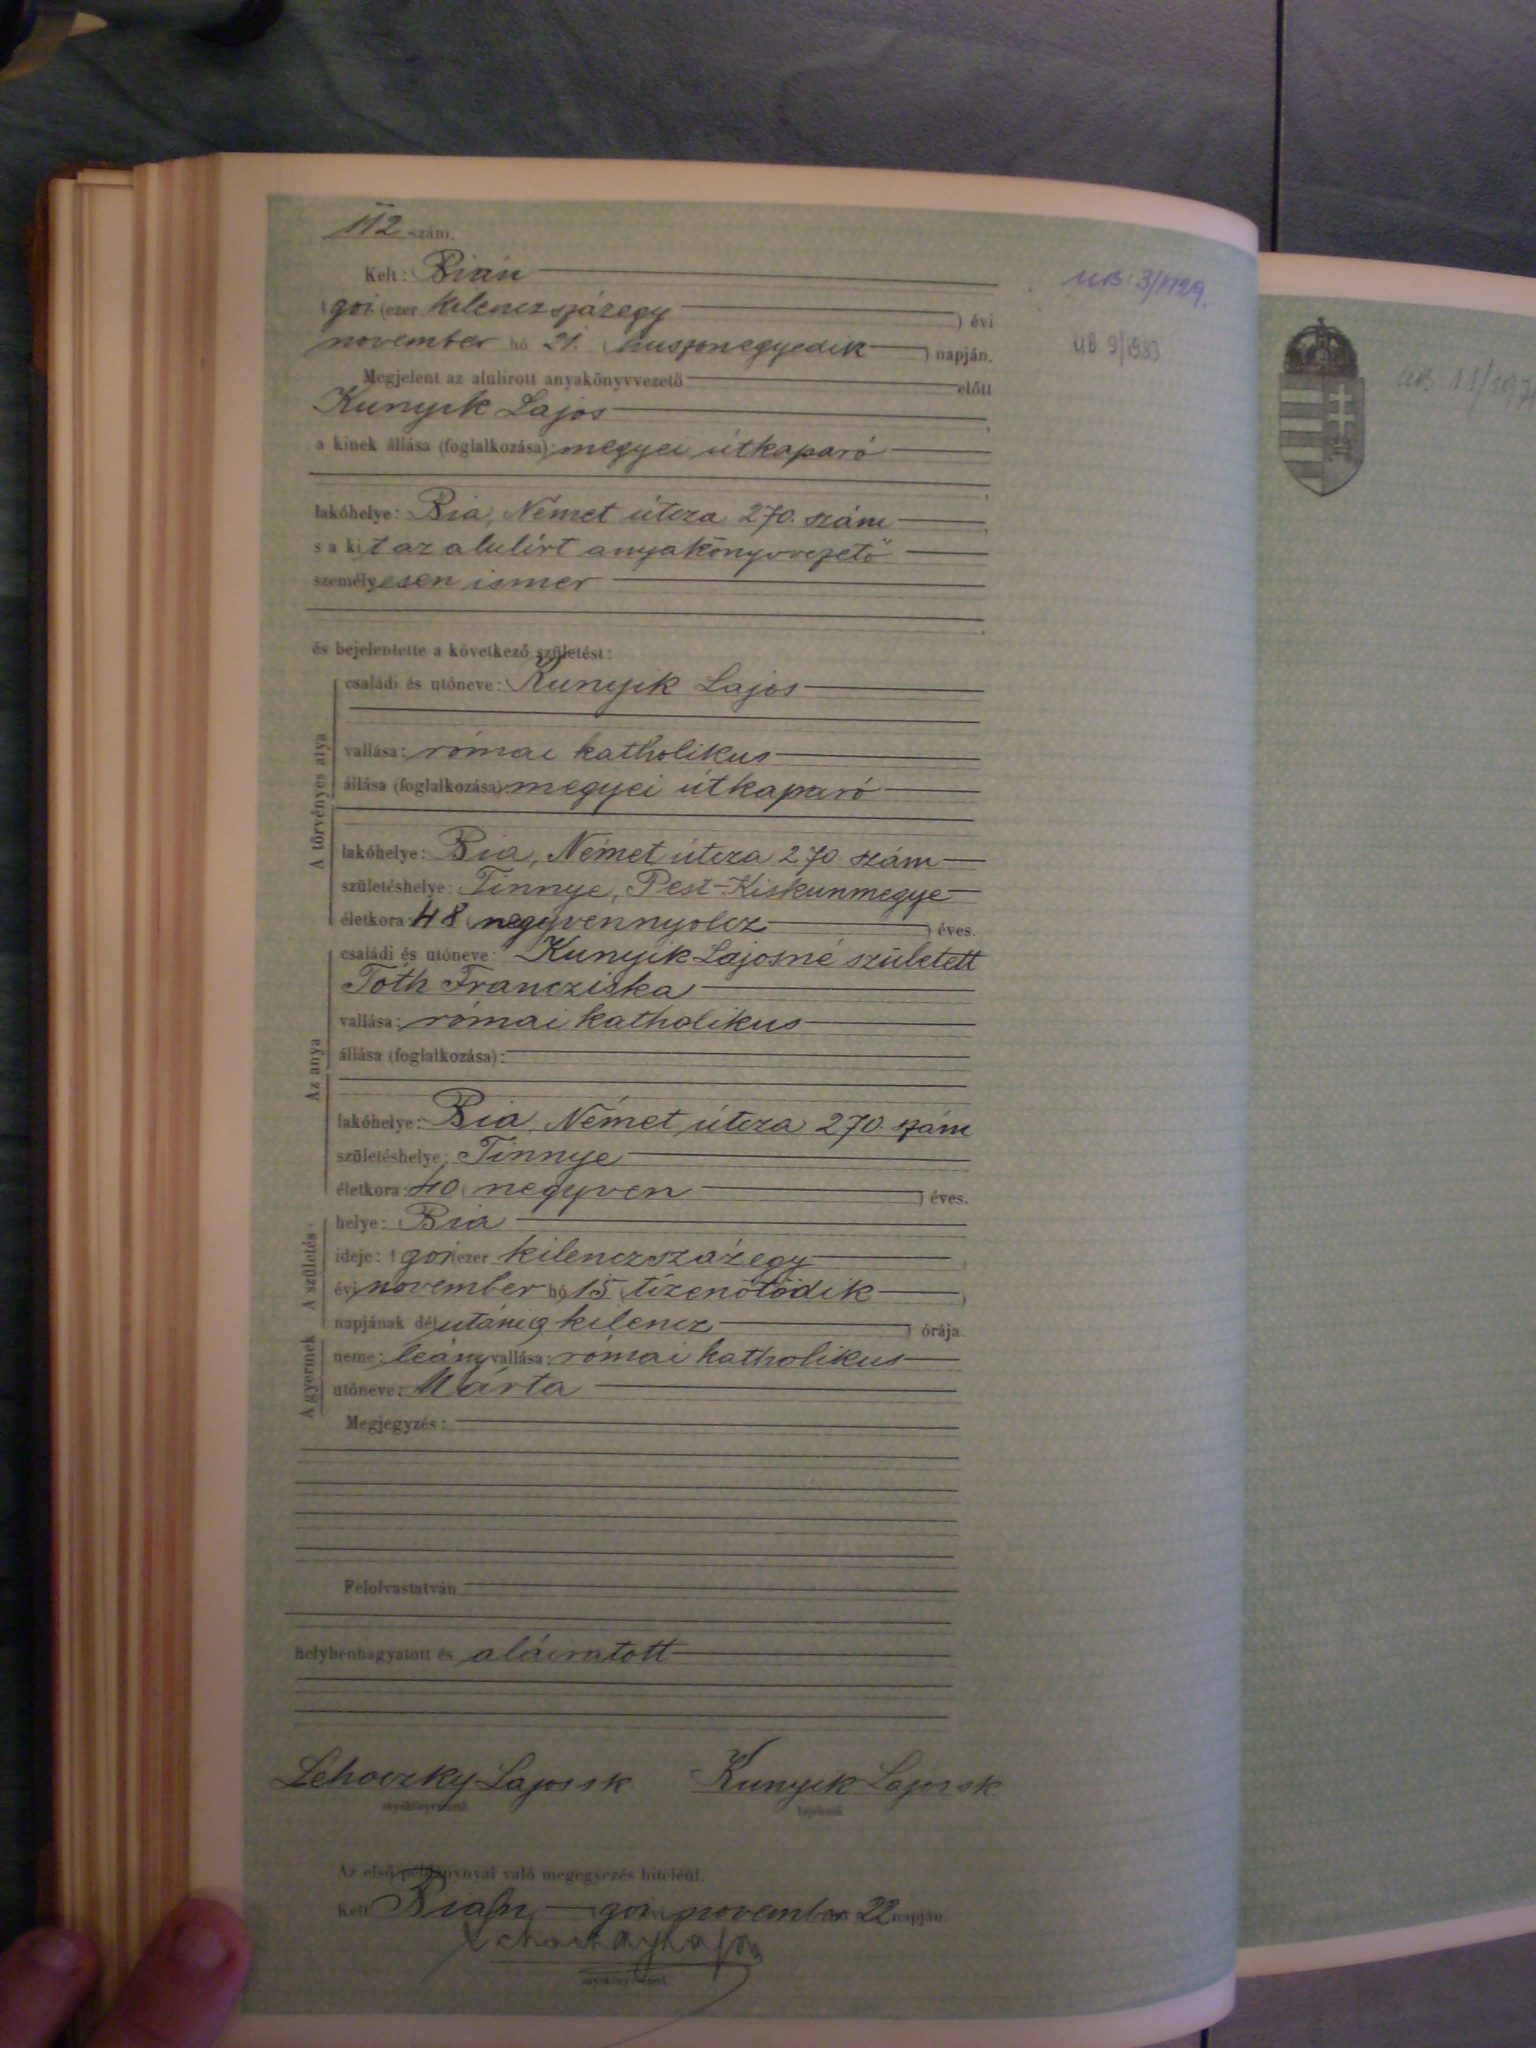 112 szám.
Kelt: Bián
1901 (ezer kilenczszázegy) évi
november hó 21. (huszonegyedik) napján.
Megjelent az alulirott anyakönyvvezető előtt
Kunyik Lajos,
a kinek állása (foglalkozása): megyei útkaparó
lakóhelye: Bia, Német útcza 270. szám,
s a kit az alulírt anyakönyvvezető
személyesen ismer
és bejelentette a következő születést:
A törvényes atya
családi és utóneve: Kunyik Lajos
vallása: római katholikus
állása (foglalkozása): megyei útkaparó
lakóhelye: Bia, Német útcza 270. szám
születéshelye: Tinnye, Pest-Kiskunmegye
életkora: 48 (negyvennyolcz) éves.
Az anya
családi és utóneve: Kunyik Lajosné született
Tóth Francziska
vallása: római katholikus
állása (foglalkozása):
lakóhelye: Bia, Német útcza 270. szám
születéshelye: Tinnye
életkora: 40 (negyven) éves.
A születés
helye: Bia
ideje: 1901 (ezer kilenczszázegy)
évi november hó 15 (tizenötödik)
napjának délutáni 9 (kilencz) órája.
A gyermek
neme: leány vallása: római katholikus
utóneve: Márta
Megjegyzés:
Felolvastatván
helybenhagyatott és aláiratott
Lehoczky Lajos sk. Kunyik Lajos sk.
anyakönyvvezető. bejelentő.
Az első példánynyal való megegyezés hiteléül.
Kelt Bián, 1901 november 22 napján.
Lehoczky Lajos
anyakönyvvezető.
UB 9/1983